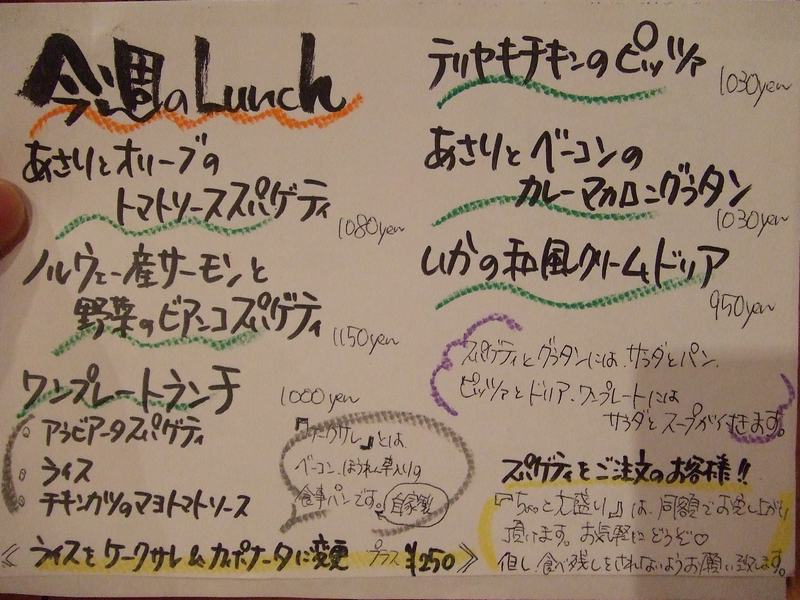 今週のLunch
あさりとオリーブの
トマトソーススパゲティ
1080yen
ノルウェー産サーモンと
野菜のビアンコスパゲティ
1150yen
ワンプレートランチ
1000yen
アラビアータスパゲティ
ライス
チキンカツのマヨトマトソース
『ケークサレ』とは
ベーコン、ほうれん草入りの
食事パンです。
自家製
《ライスをケークサレ&カポナータに変更 プラス ¥250》
テリヤキチキンのピッツァ
1030yen
あさりとベーコンの
カレーマカロニグラタン
1030yen
いかの和風クリームドリア
950yen
スパゲティとグラタンには、サラダとパン、
ピッツァとドリア、ワンプレートには
サラダとスープが付きます。
スパゲティをご注文のお客様!!
『ちょっと大盛り』は、同額でお召し上がり
頂けます。お気軽にどうぞ♡
但し、食べ残しをされないようお願い致します。